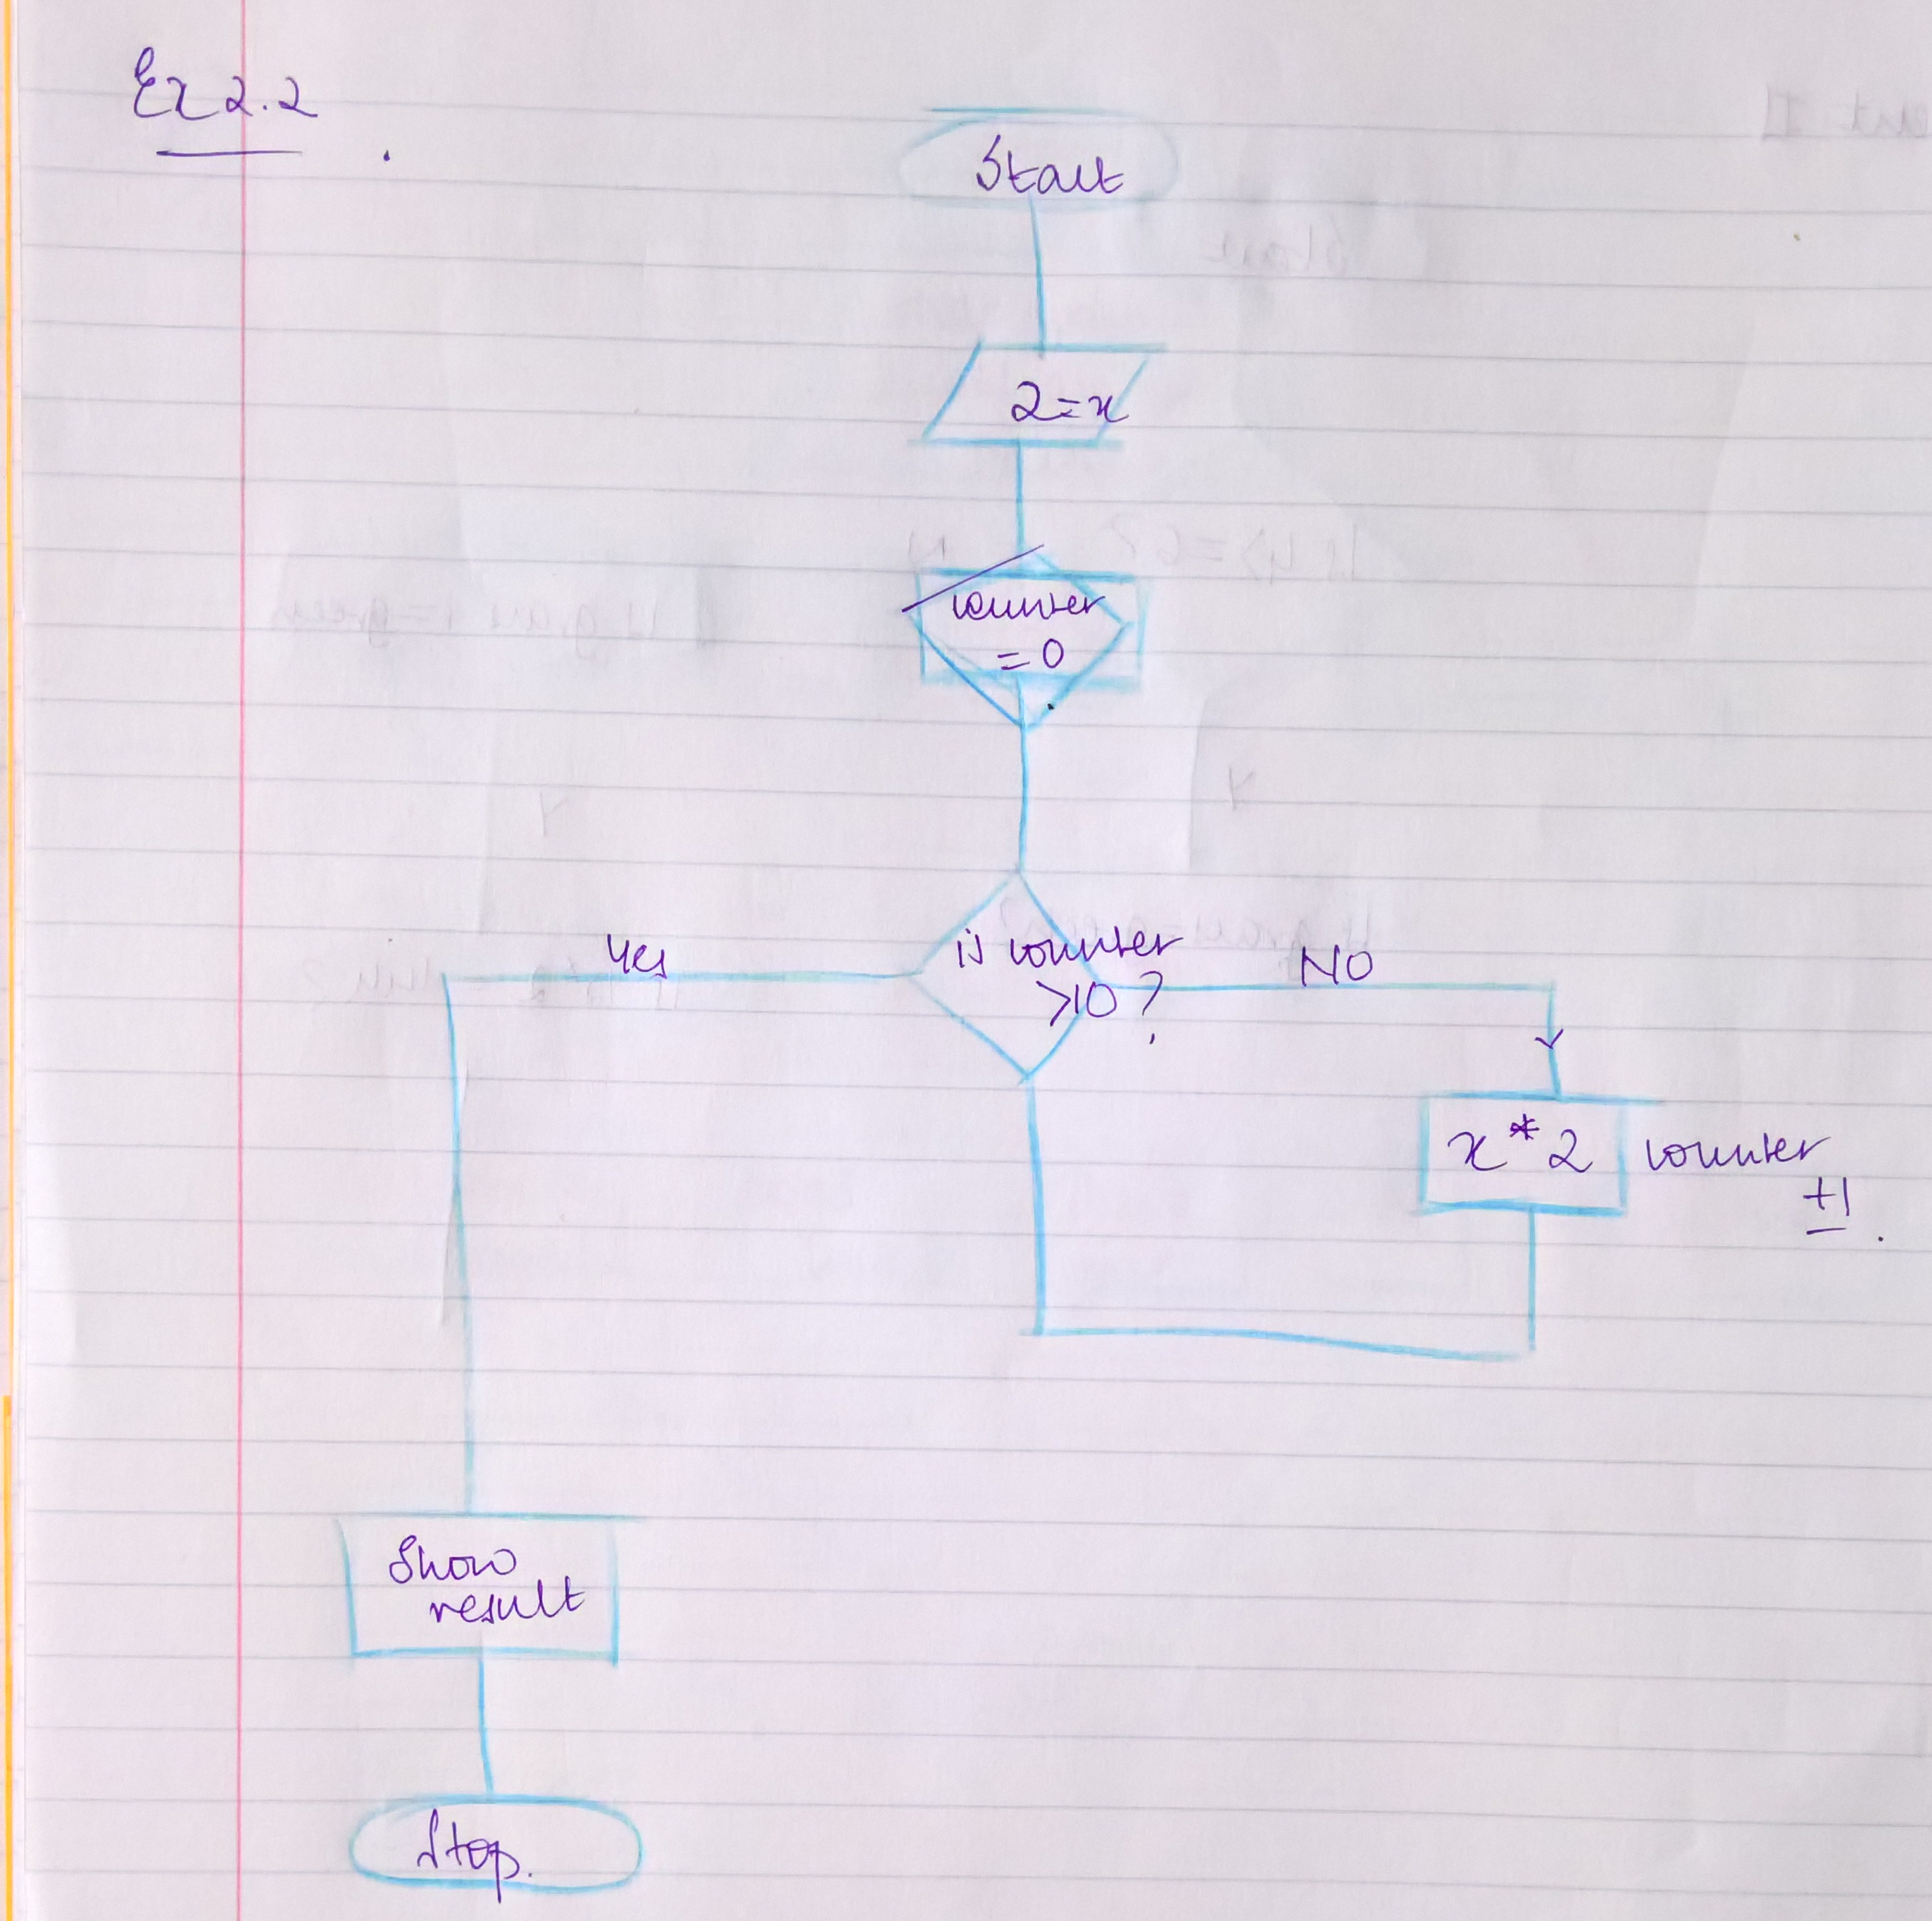 Ex 2.2
Start
2=x
counter
=0
is counter
>10?
Yes
NO
x*2
counter
+1.
Show
result
Stop.